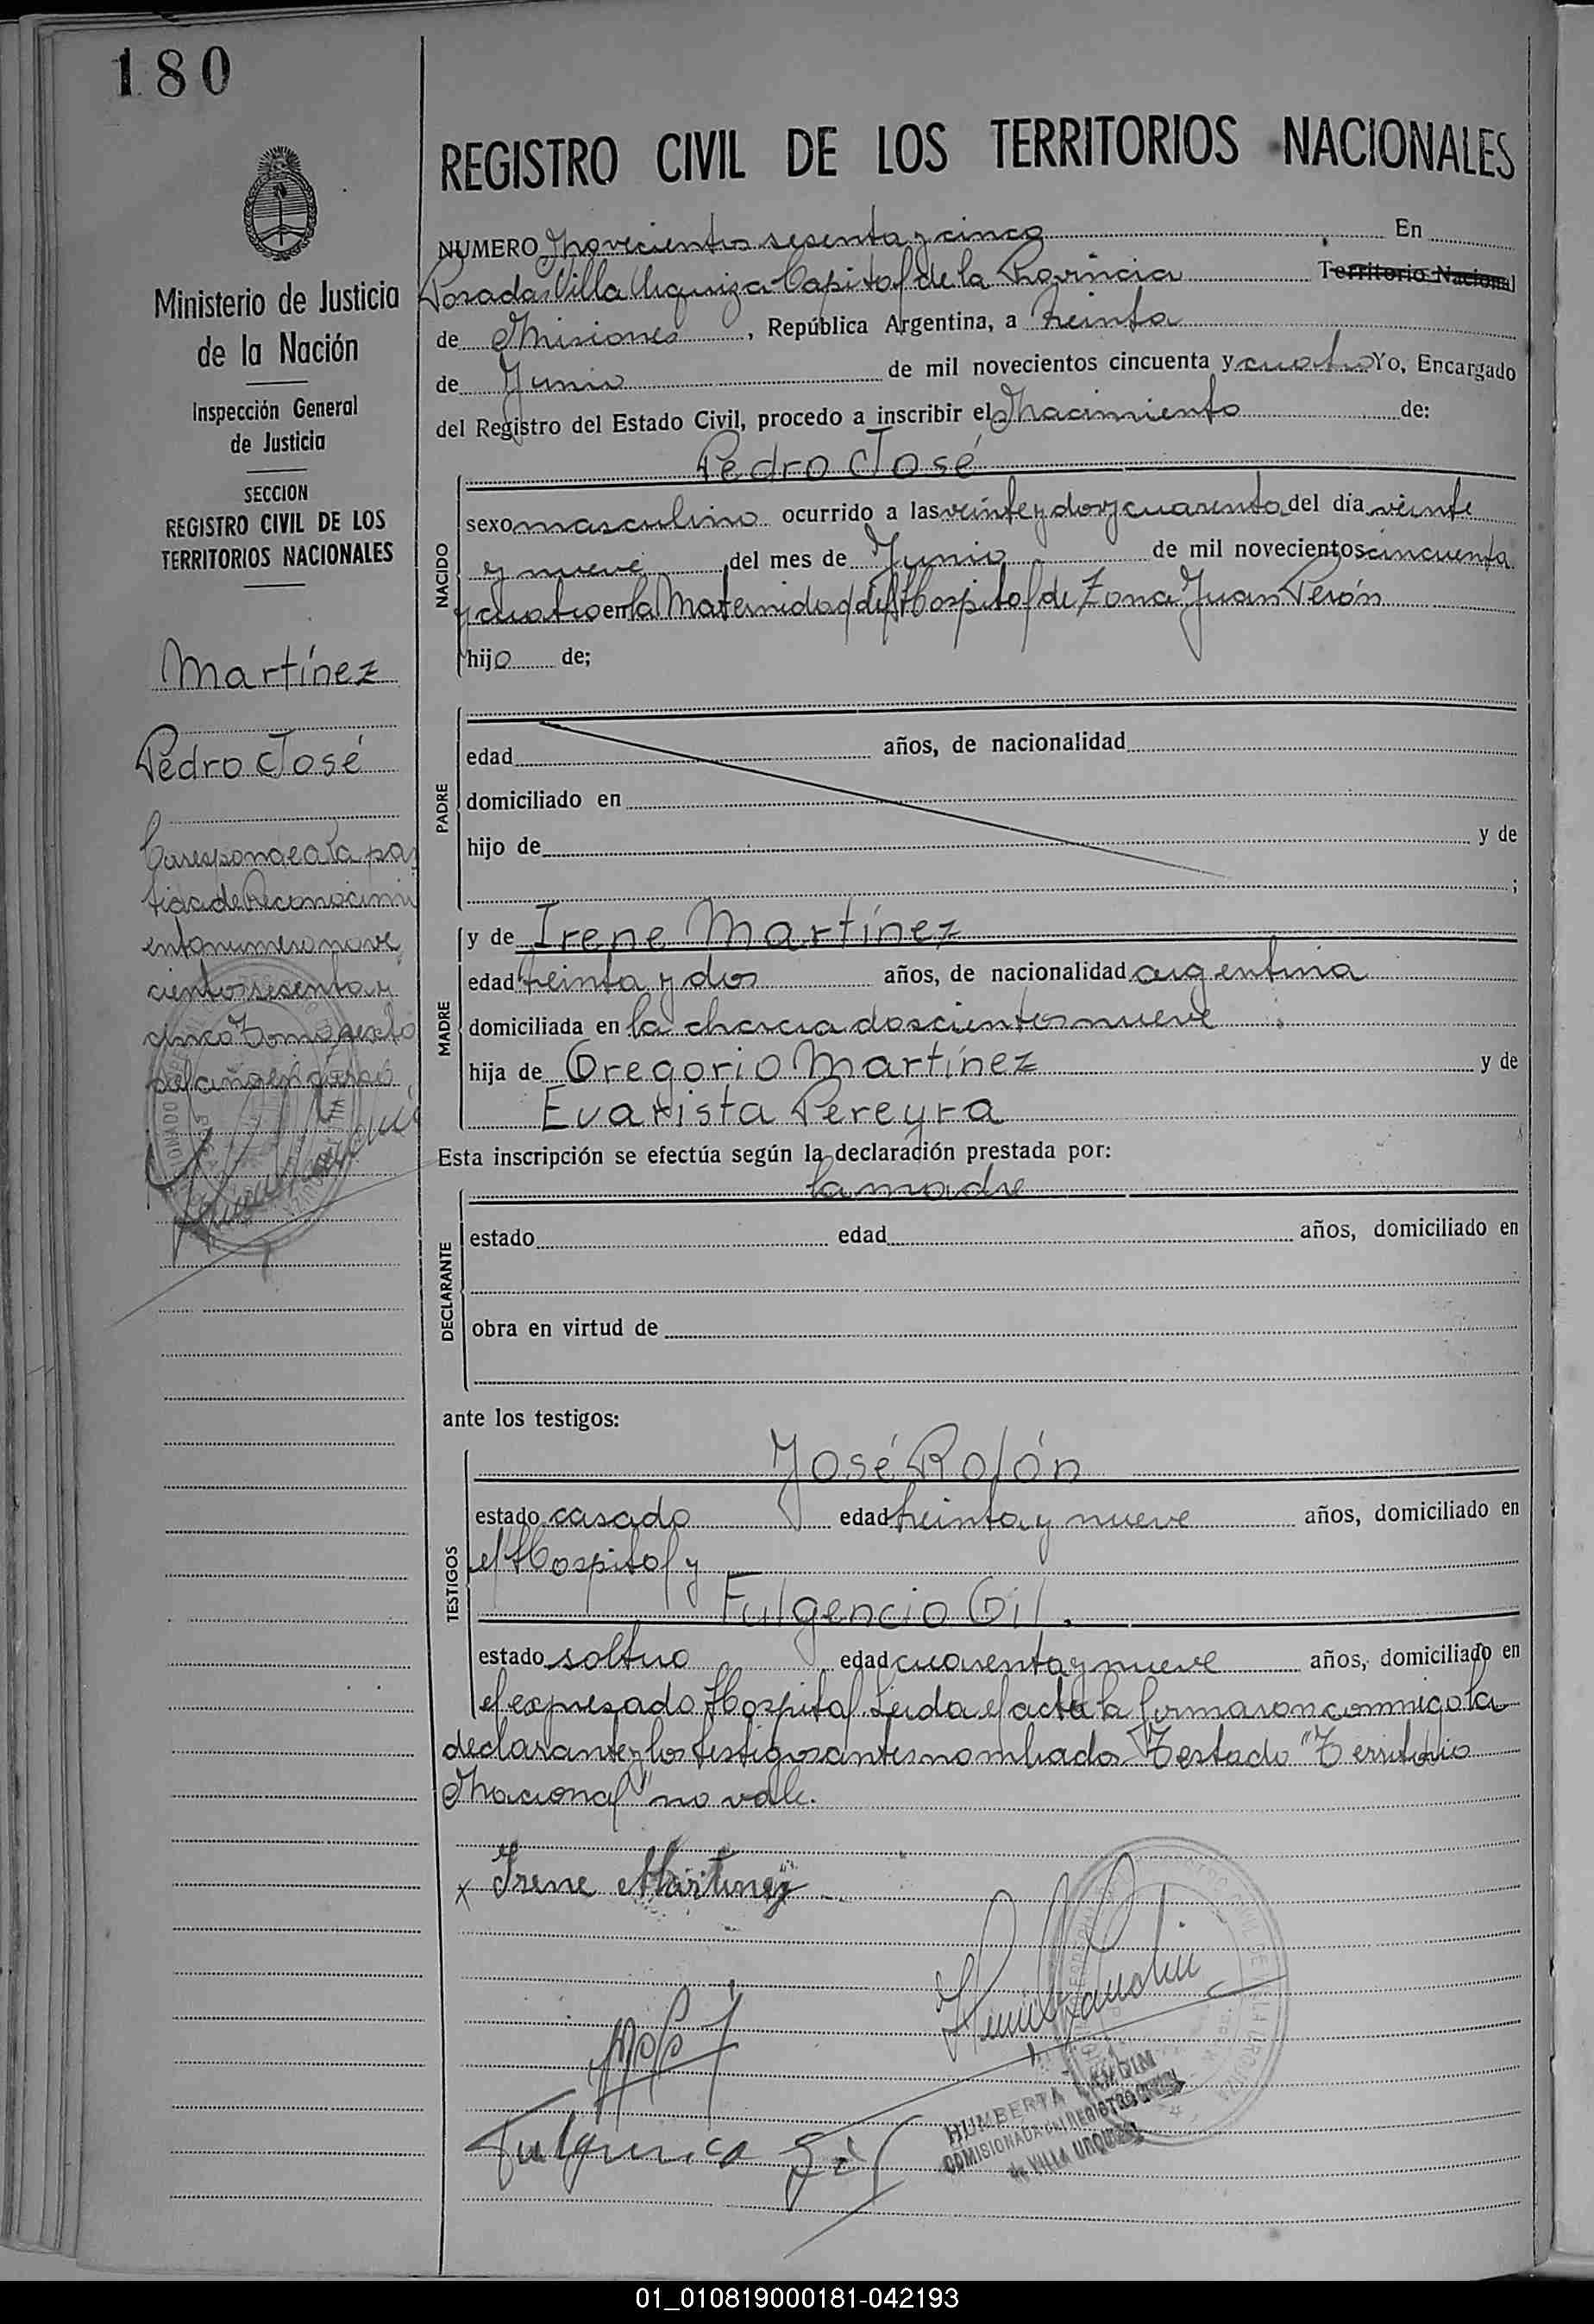 180
REGISTRO CIVIL DE LOS TERRITORIOS NACIONALES
Ministerio de Justicia
de la Nación
Inspección General
de Justicia
SECCION
REGISTRO CIVIL DE LOS
TERRITORIOS NACIONALES
Martínez
Pedro José
Corresponde a la par
tida de Reconocimi
ento numero nove
cientos sesenta y
cinco Tomo sexto
del año en curso
NUMERO Novecientos sesenta y cinco En
Posadas Villa Urquiza Capital de la Provincia Territorio Nacional
de Misiones, República Argentina, a treinta
de Junio de mil novecientos cincuenta y cuatro Yo, Encargado
del Registro del Estado Civil, procedo a inscribir el Nacimiento de:
NACIDO
Pedro José
sexo masculino ocurrido a las veinte y dos y cuarenta del día veinte
y nueve del mes de Junio de mil novecientos cincuenta
y cuatro en la Maternidad del Hospital de Zona Juan Perón
hijo de;
PADRE
edad años, de nacionalidad
domiciliado en
hijo de y de
;
MADRE
y de Irene Martínez
edad treinta y dos años, de nacionalidad argentina
domiciliada en la chacra doscientos nueve
hija de Gregorio Martínez y de
Evarista Pereyra
Esta inscripción se efectúa según la declaración prestada por:
DECLARANTE
la madre
estado edad años, domiciliado en
obra en virtud de
ante los testigos:
TESTIGOS
José Rolón
estado casado edad treinta y nueve años, domiciliado en
el Hospital y
Fulgencio Gil.
estado soltero edad cuarenta y nueve años, domiciliado en
el expresado Hospital. Leida el acta la firmaron conmigo la
declarante y los testigos antes nombrados. Testado "Territorio
Nacional" no vale.
x Irene Martinez
HUMBERTA LANDIM
COMISIONADA DEL REGISTRO CIVIL
de VILLA URQUIZA
Fulgencio Gil
01_010819000181-042193